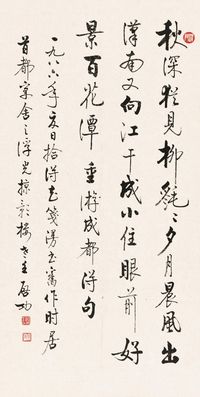 秋深猶見柳毿々夕月晨風出
漢南又向江干成小住眼前好
景百花潭重游成都得句
一九八六年夏日拾得色箋漫書舊作時居
首都寓舍之浮光掠影樓啟功